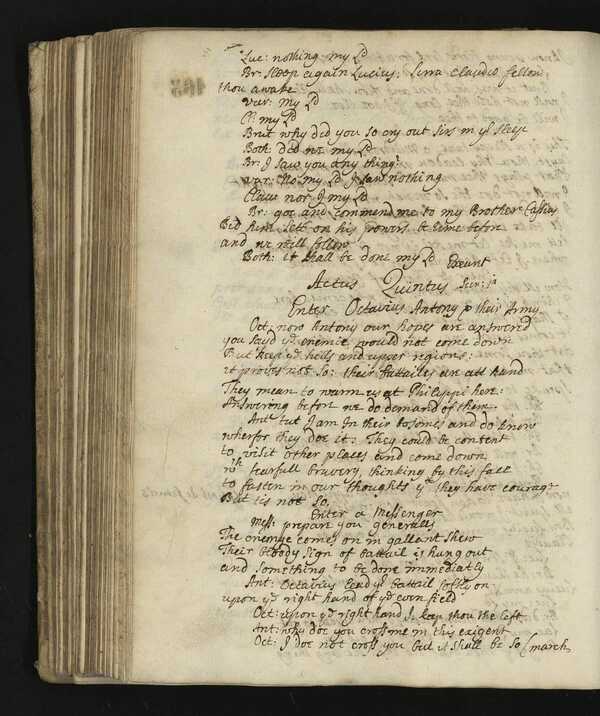 Luc: nothing my Ld
Br: Sleep again Lucius: Sirra Claudio fellow
thou awake
var: my Ld
Cl: my Ld
Brut why did you so cry out sirs in yr sleep
Both: did we my Ld
Br: I saw you any thing:
var: No my Ld I saw nothing
Claud nor I my Ld
Br: goe and commend me to my Brother Cassius
Bid him sett on his powers be time before
and we will follow
Both: it shall be done my Ld Exeunt
Actus Quintus Scen: 1a
Enter Octavius Antony & their Army
Oct: now Antony our hopes are answered
you sayd ye enemie would not come down
But keep ye hills and upper regions:
it proves not so: their battailes are att hand
They mean to warn us at Philippi here:
Answering before we do demand of them.
Ant: tut I am in their bosomes and do know
wherfor they doe it: They could be content
to visit other places and come down
wth fearfull bravery, thinking by this face
to fasten in our thoughts yt they have courage
But tis not so.
Enter a Messenger
Mess: prepare you generalls
The enemye comes on in gallant shew
Their bloody sign of battail is hung out
and something to be done immediatly
Ant: Octavius lead yr battail softly on
upon ye right hand of ye even field
Oct: upon ye right hand I, keep thou the left
Ant: why doe you cross me in this exigent
Oct: I doe not cross you but it shall be so (march